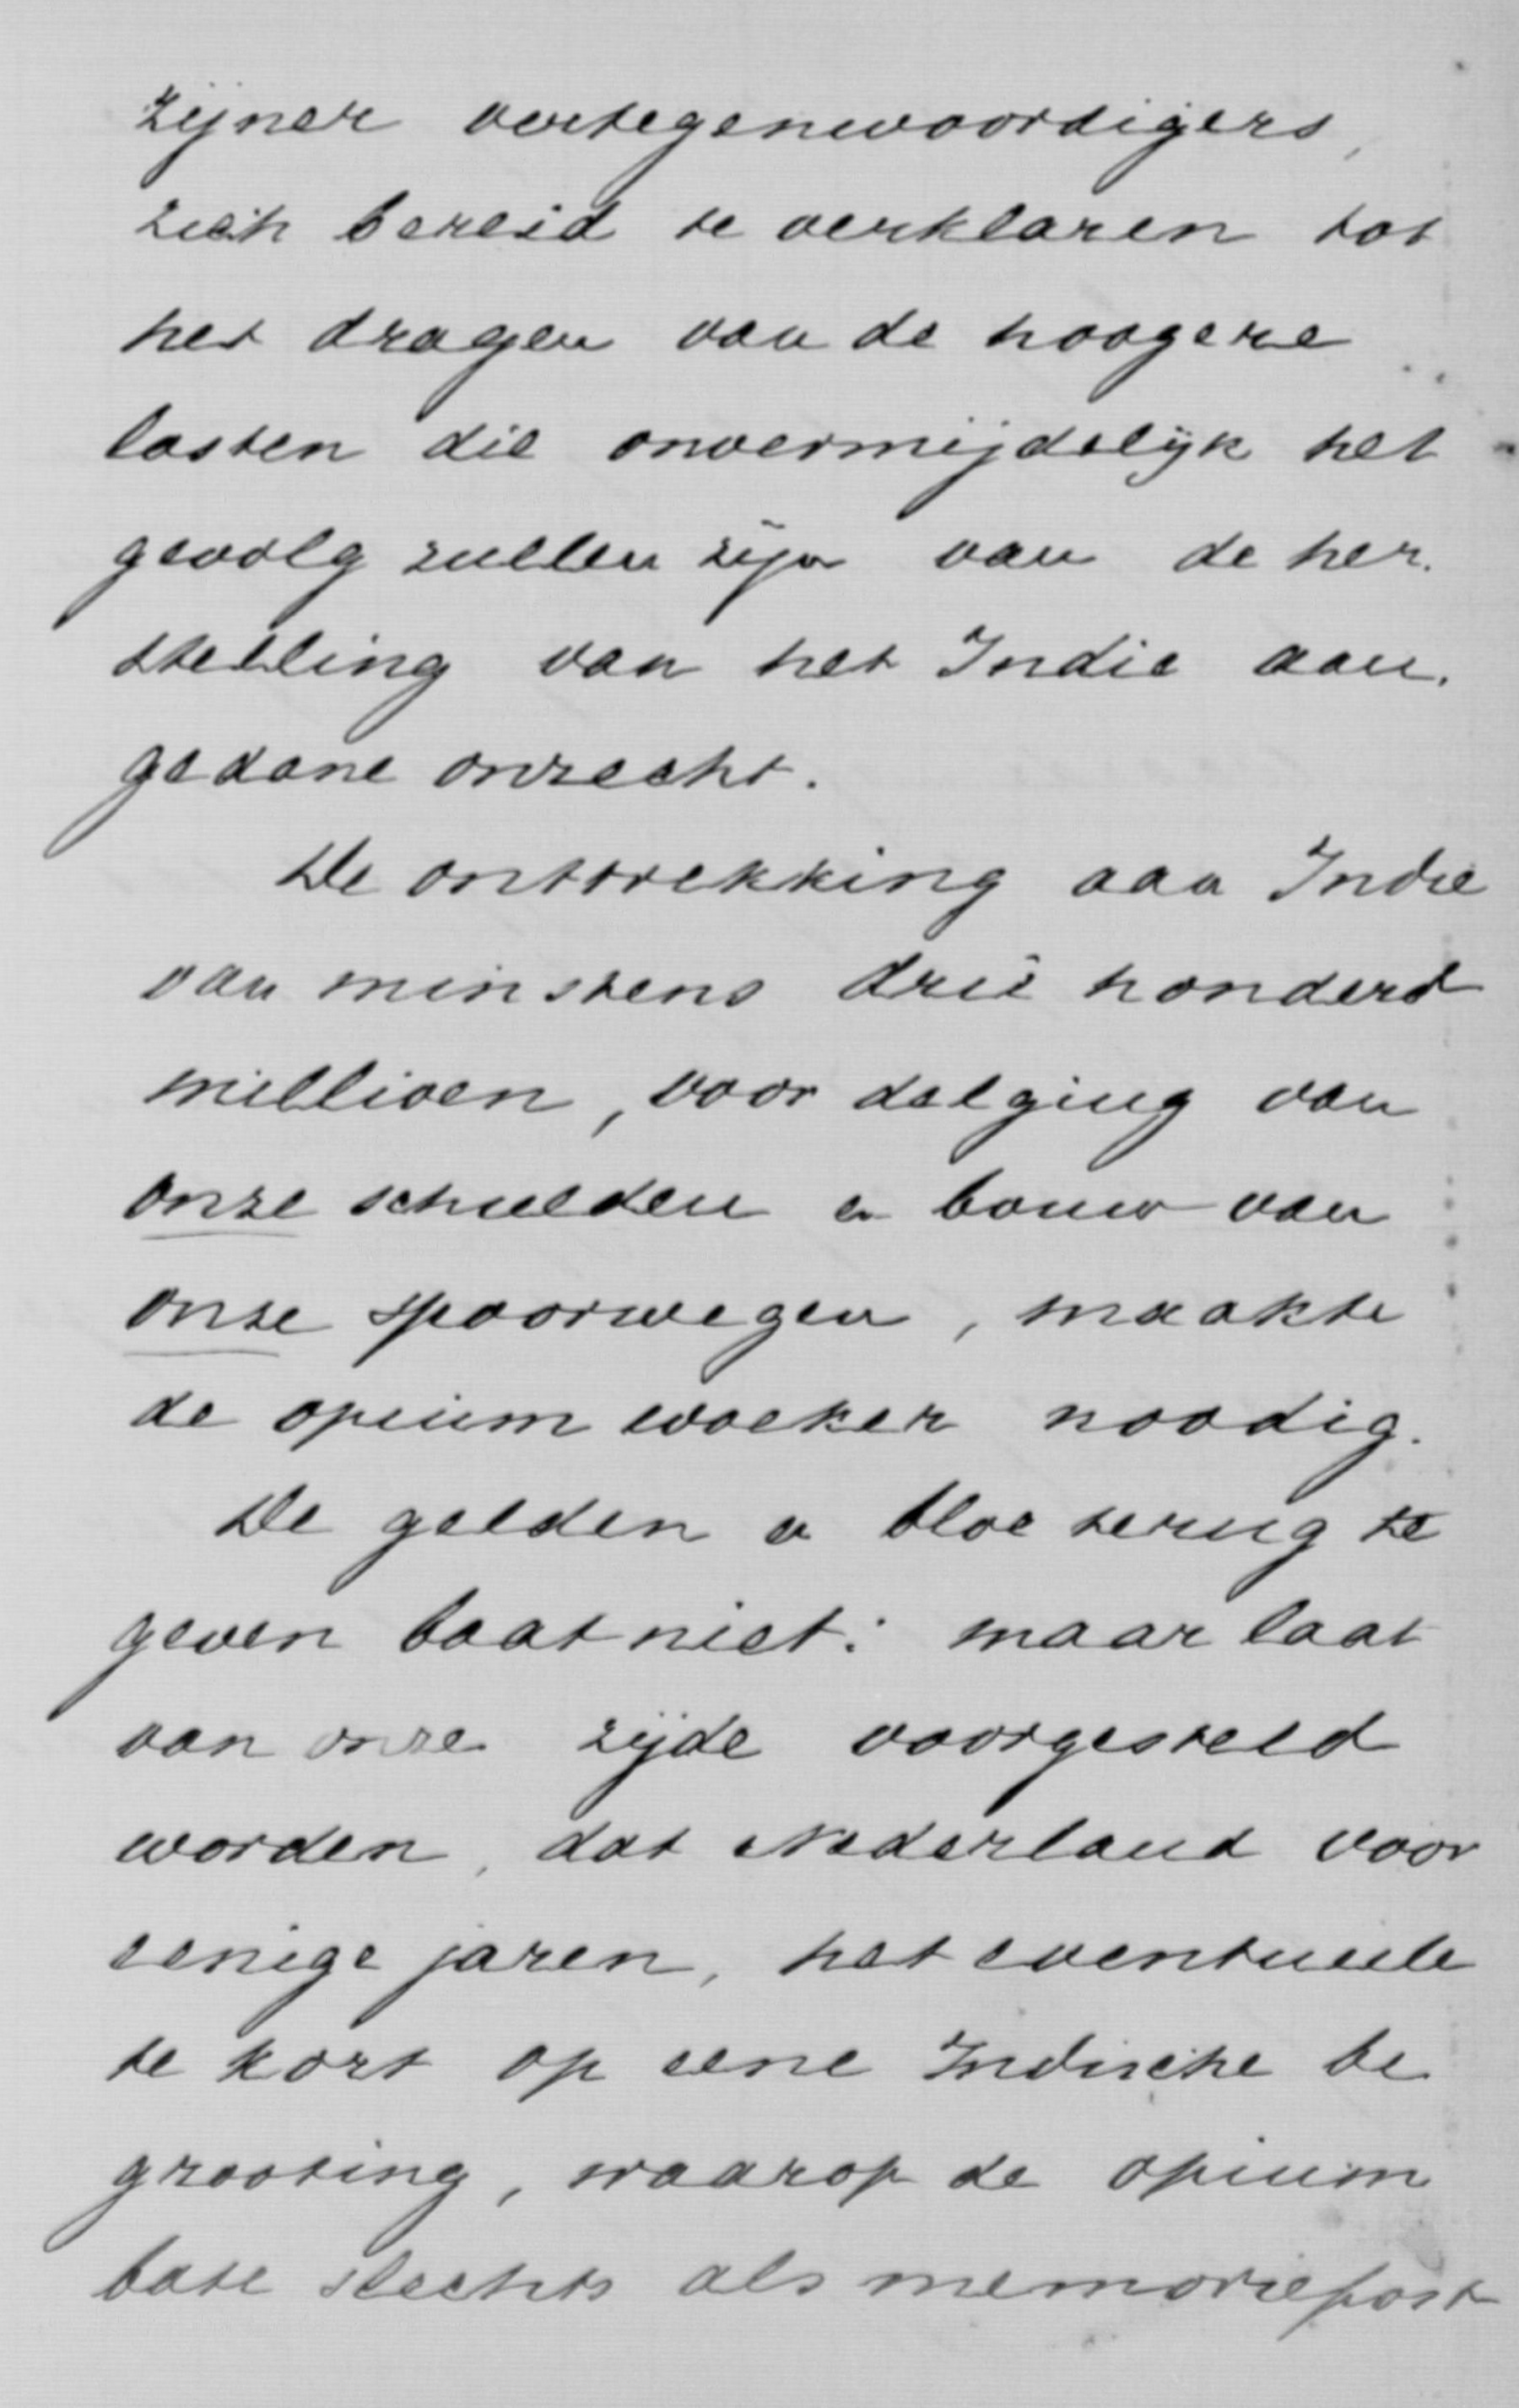 zijner vertegenwoordigers,
zich bereid te verklaren tot
het dragen van de hoogere
lasten die onvermijdelijk het
gevolg zullen zijn van de her.
stelling van het Indie aan.
gedane onrecht.
De onttrekking aan Indie
van minstens drie honderd
millioen, voor delging van
onze schulden en bouw van
onze spoorwegen, maakte
de opium woeker noodig.
De gelden en bloc terug te
geven baat niet: maar laat
van onze zijde voorgesteld
worden, dat Nederland voor
eenige jaren, het eventueele
te kort op eene Indische be
grooting, waarop de opium
bate slechts als memoriepost